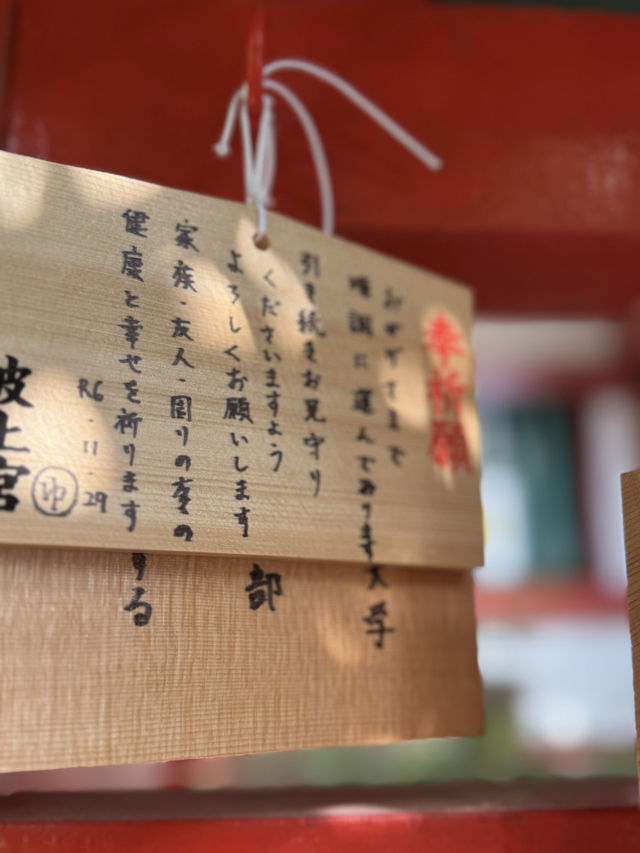 奉祈願
おかげさまで
順調に運んでおります
引き続きお見守り
くださいますよう
よろしくお願いします
家族・友人・周りの方の
健康と幸せを祈ります
R6・11・29
波上宮
大学
部
する